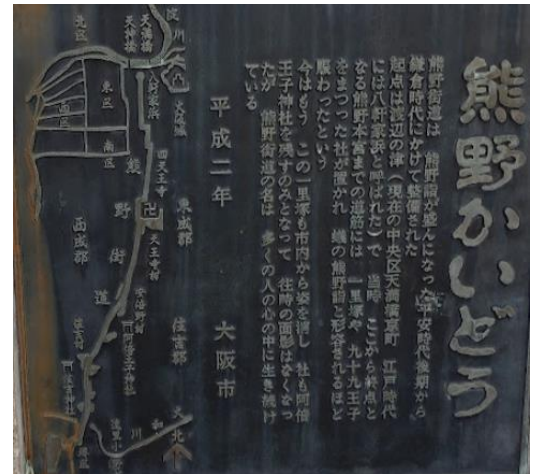 熊野かいどう
熊野街道は 熊野詣が盛んになった平安時代後期から
鎌倉時代にかけて整備された
起点は渡辺の津(現在の中央区天満橋京町 江戸時代
には八軒家浜と呼ばれた)で 当時 ここから終点と
なる熊野本宮までの道筋には 一里塚や、九十九王子
をまつった社が置かれ 蟻の熊野詣と形容されるほど
賑わったという
今はもう この一里塚も市内から姿を消し 社も阿倍
王子神社を残すのみとなって 往時の面影はなくなっ
たが 熊野街道の名は 多くの人の心の中に生き続け
ている
平成二年 大阪市
淀川
天満橋
天神橋
北区
大阪城
八軒家浜
東区
西区
南区
四天王寺
熊野街道
東成郡
天王寺村
西成郡
住吉郡
阿倍王子神社
大和川
北